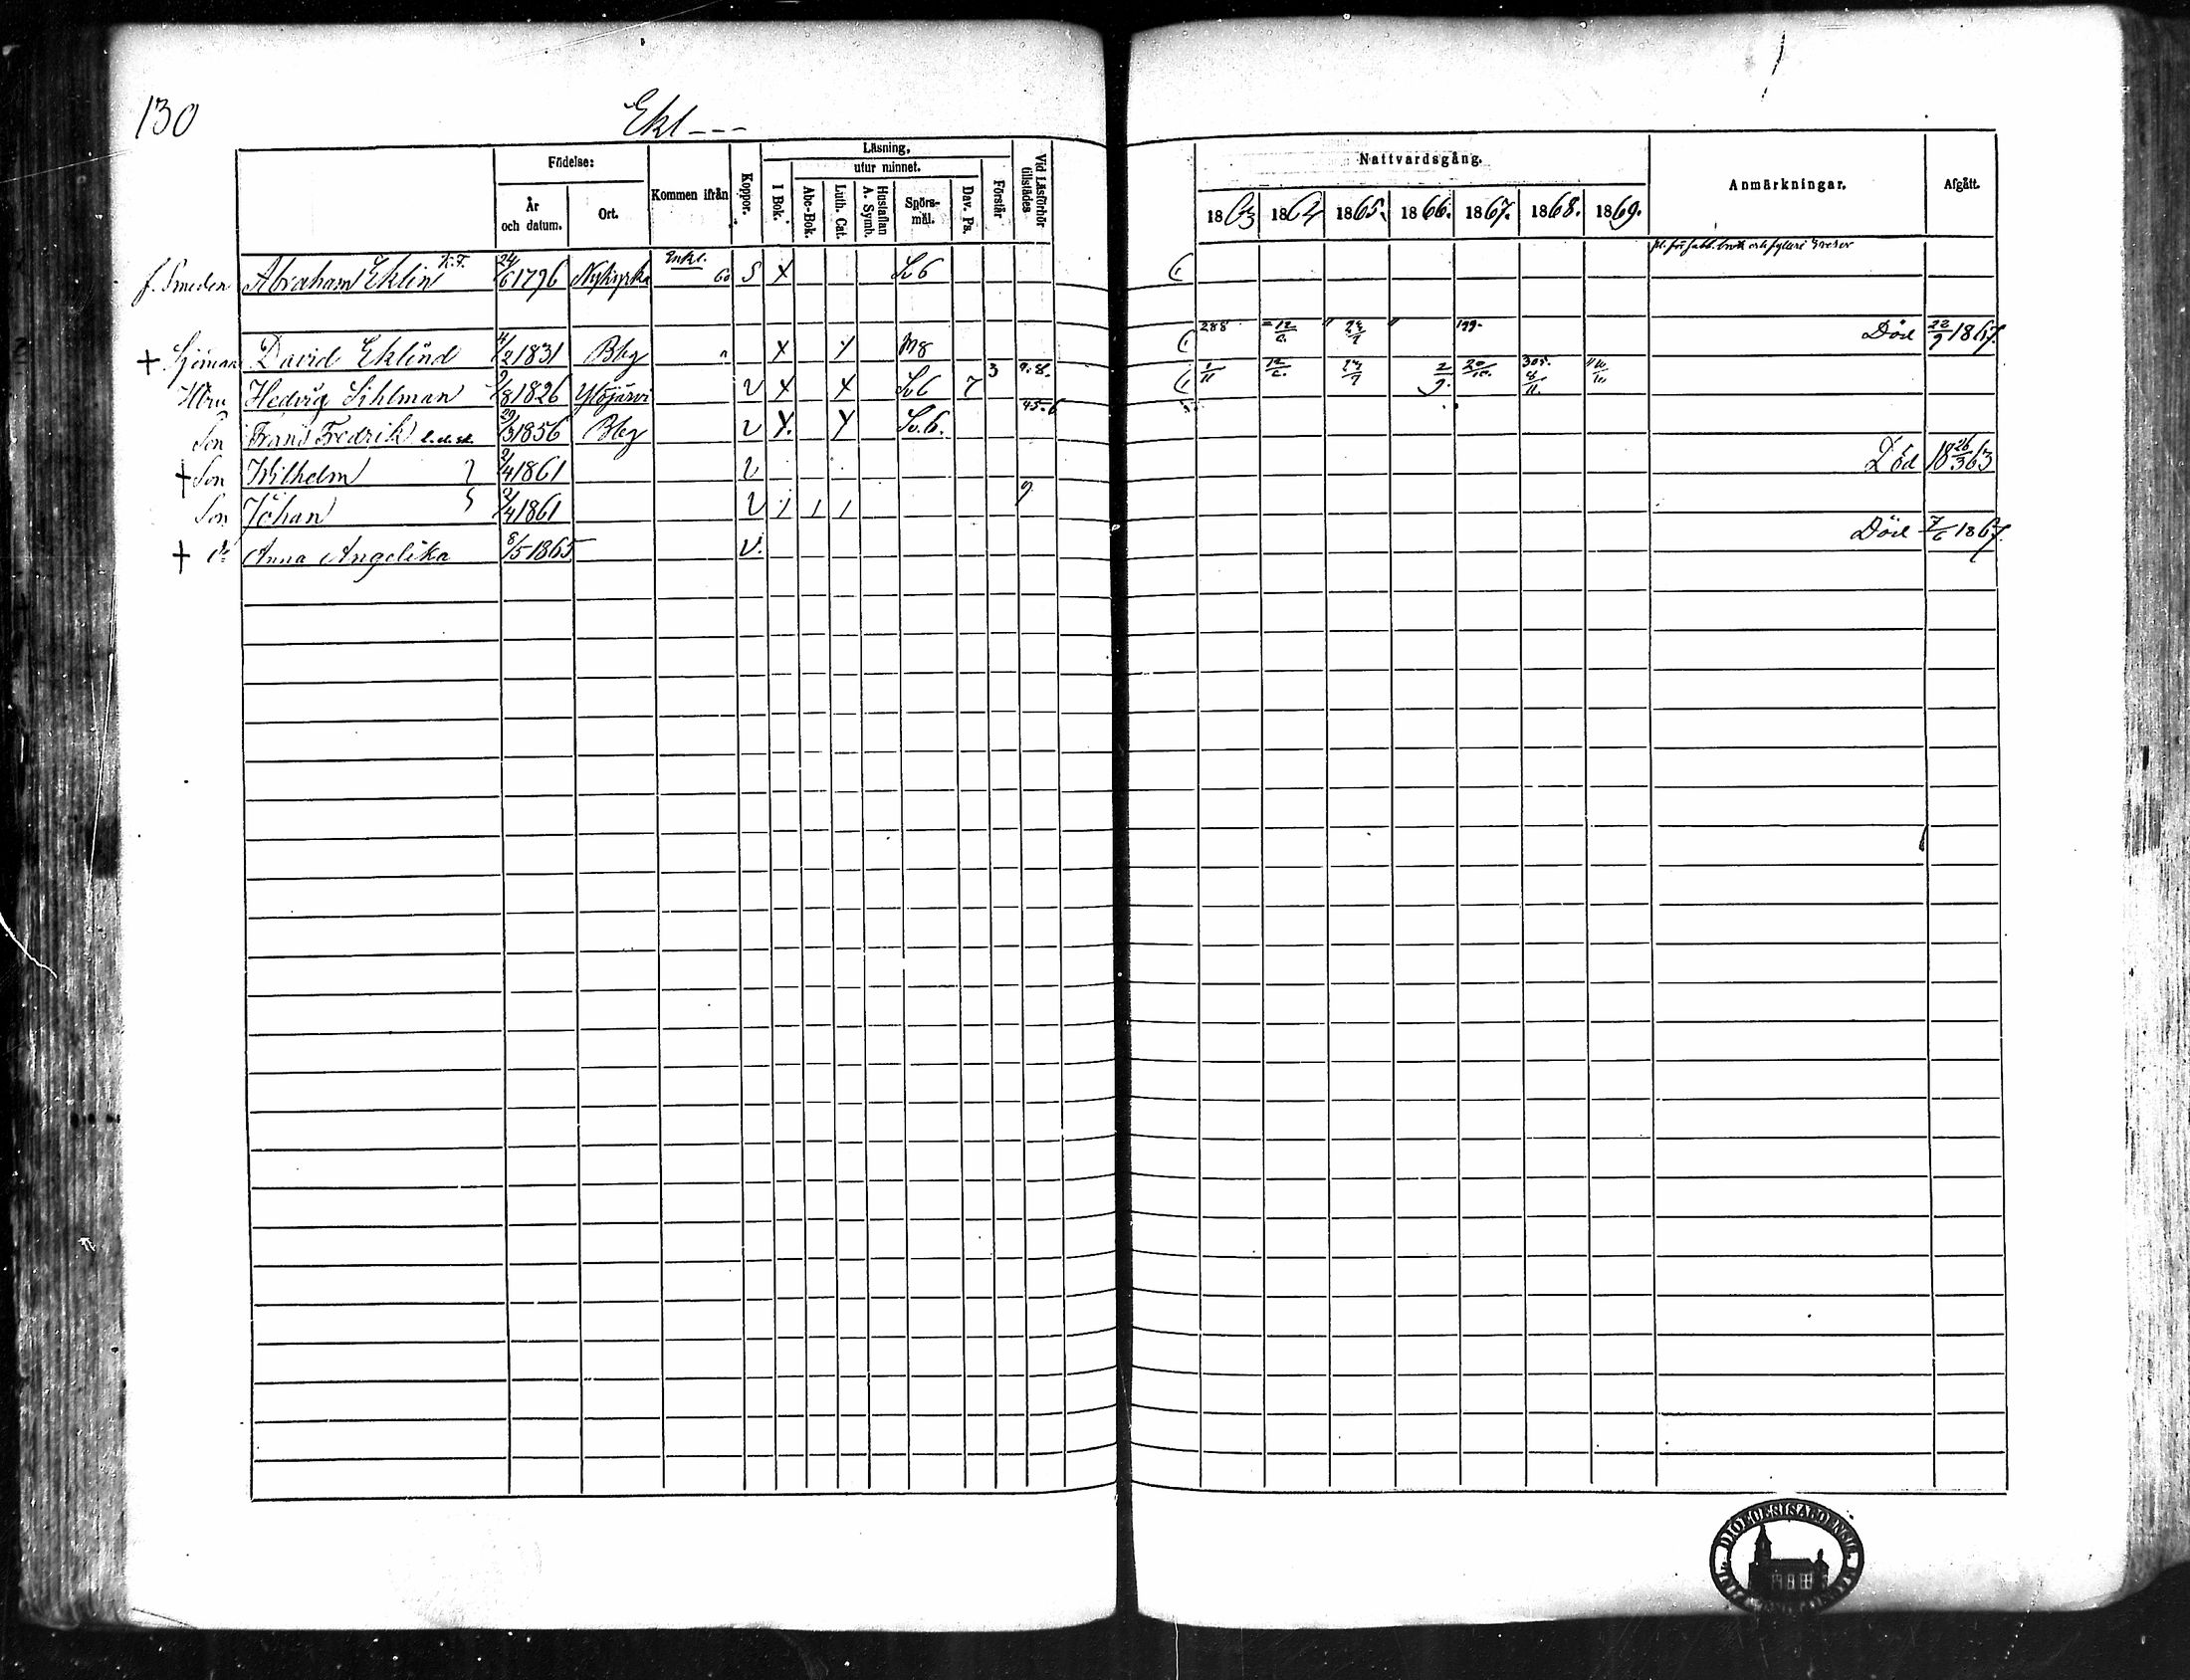 130
Ekl---
Födelse:
År och datum.
Ort.
Kommen ifrån
Koppor.
Läsning,
utur minnet.
I Bok.
Abc-Bok.
Luth. Cat.
Hustaflan A. Symb.
Spörs-mål.
Dav. Ps.
Förstår
Vid Läsförhör tillstädes
Nattvardsgång.
1863 1864 1865. 1866. 1867. 1868. 1869.
Anmärkningar.
Afgått.
f. Smeden Abraham Eklin 24/6 1796 Nykyrka 60 S X Sv 6
+ Sjöman David Eklind 4/2 1831 Bbg " X X M8 288 12/6 " 24/9 " 199. Död 22/9 1867.
Hru Hedvig Sihlman 2/8 1826 Ylöjärvi V X X Sv 6 7 3 7.8. 1/11 12/6. 24/9 2/9. 20/10. 305. 8/11.
Son Frans Fredrik 29/3 1856 Bbg V X. X Sv. 6. 45.6
+ Son Wilhelm 2/4 1861 V Död 18 26/3 63
Son Johan 2/4 1861 V / / / 9
+ Dr Anna Angelika 8/5 1865 V. Död 7/6 1867.